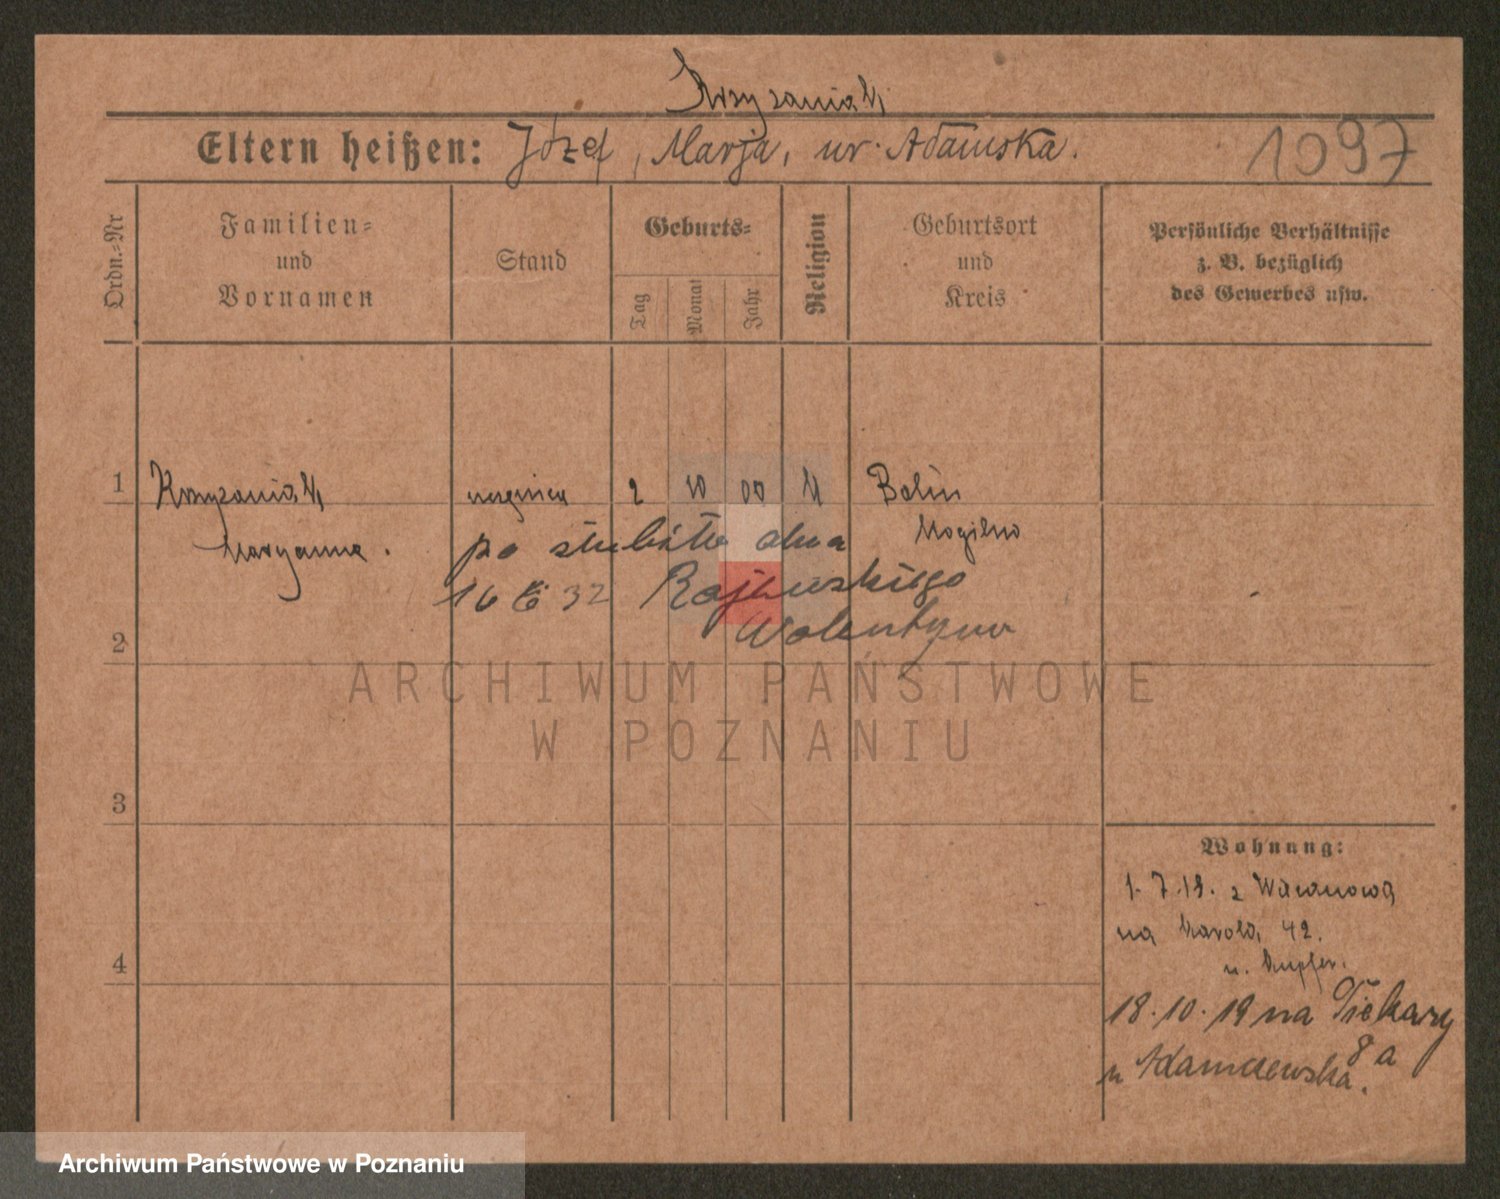 Krzyżaniak
Eltern heißen: Józef, Marja, ur. Adamska.
1097
Ordn.-Nr
Familien-
und
Vornamen
Stand
Geburts-
Tag
Monat
Jahr
Religion
Geburtsort
und
Kreis
Persönliche Verhältnisse
z. B. bezüglich
des Gewerbes usw.
1 Krzyżaniak 2 10 00 k
Maryanna. Mogilno
po dnia
16 32 Rajewskiego
2 Walentym
ARCHIWUM PAŃSTWOWE
W POZNANIU
3
4
Wohnung:
1.7.19. z
na Karola, 42.
u. Kupfer.
18.10.19 na Piekary
8 a
u Adamczewska.
Archiwum Państwowe w Poznaniu